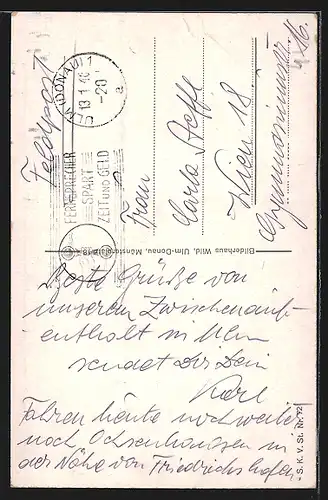 Feldpost
ULM (DONAU) 1
13.1.40
-20
a
FERNSPRECHER
SPART
ZEIT UND GELD
Frau
Carla
Wien 18
Gymnasiumstr.
Bilderhaus Wild, Ulm-Donau, Münsterplatz
Beste Grüße von
unserem Zwischenauf-
enthalt in Ulm
sendet Dir Dein
Karl
Fahren heute noch weiter
nach Ochsenhausen in
der Nähe von Friedrichshafen.
S. K. V. St. Nr. 72